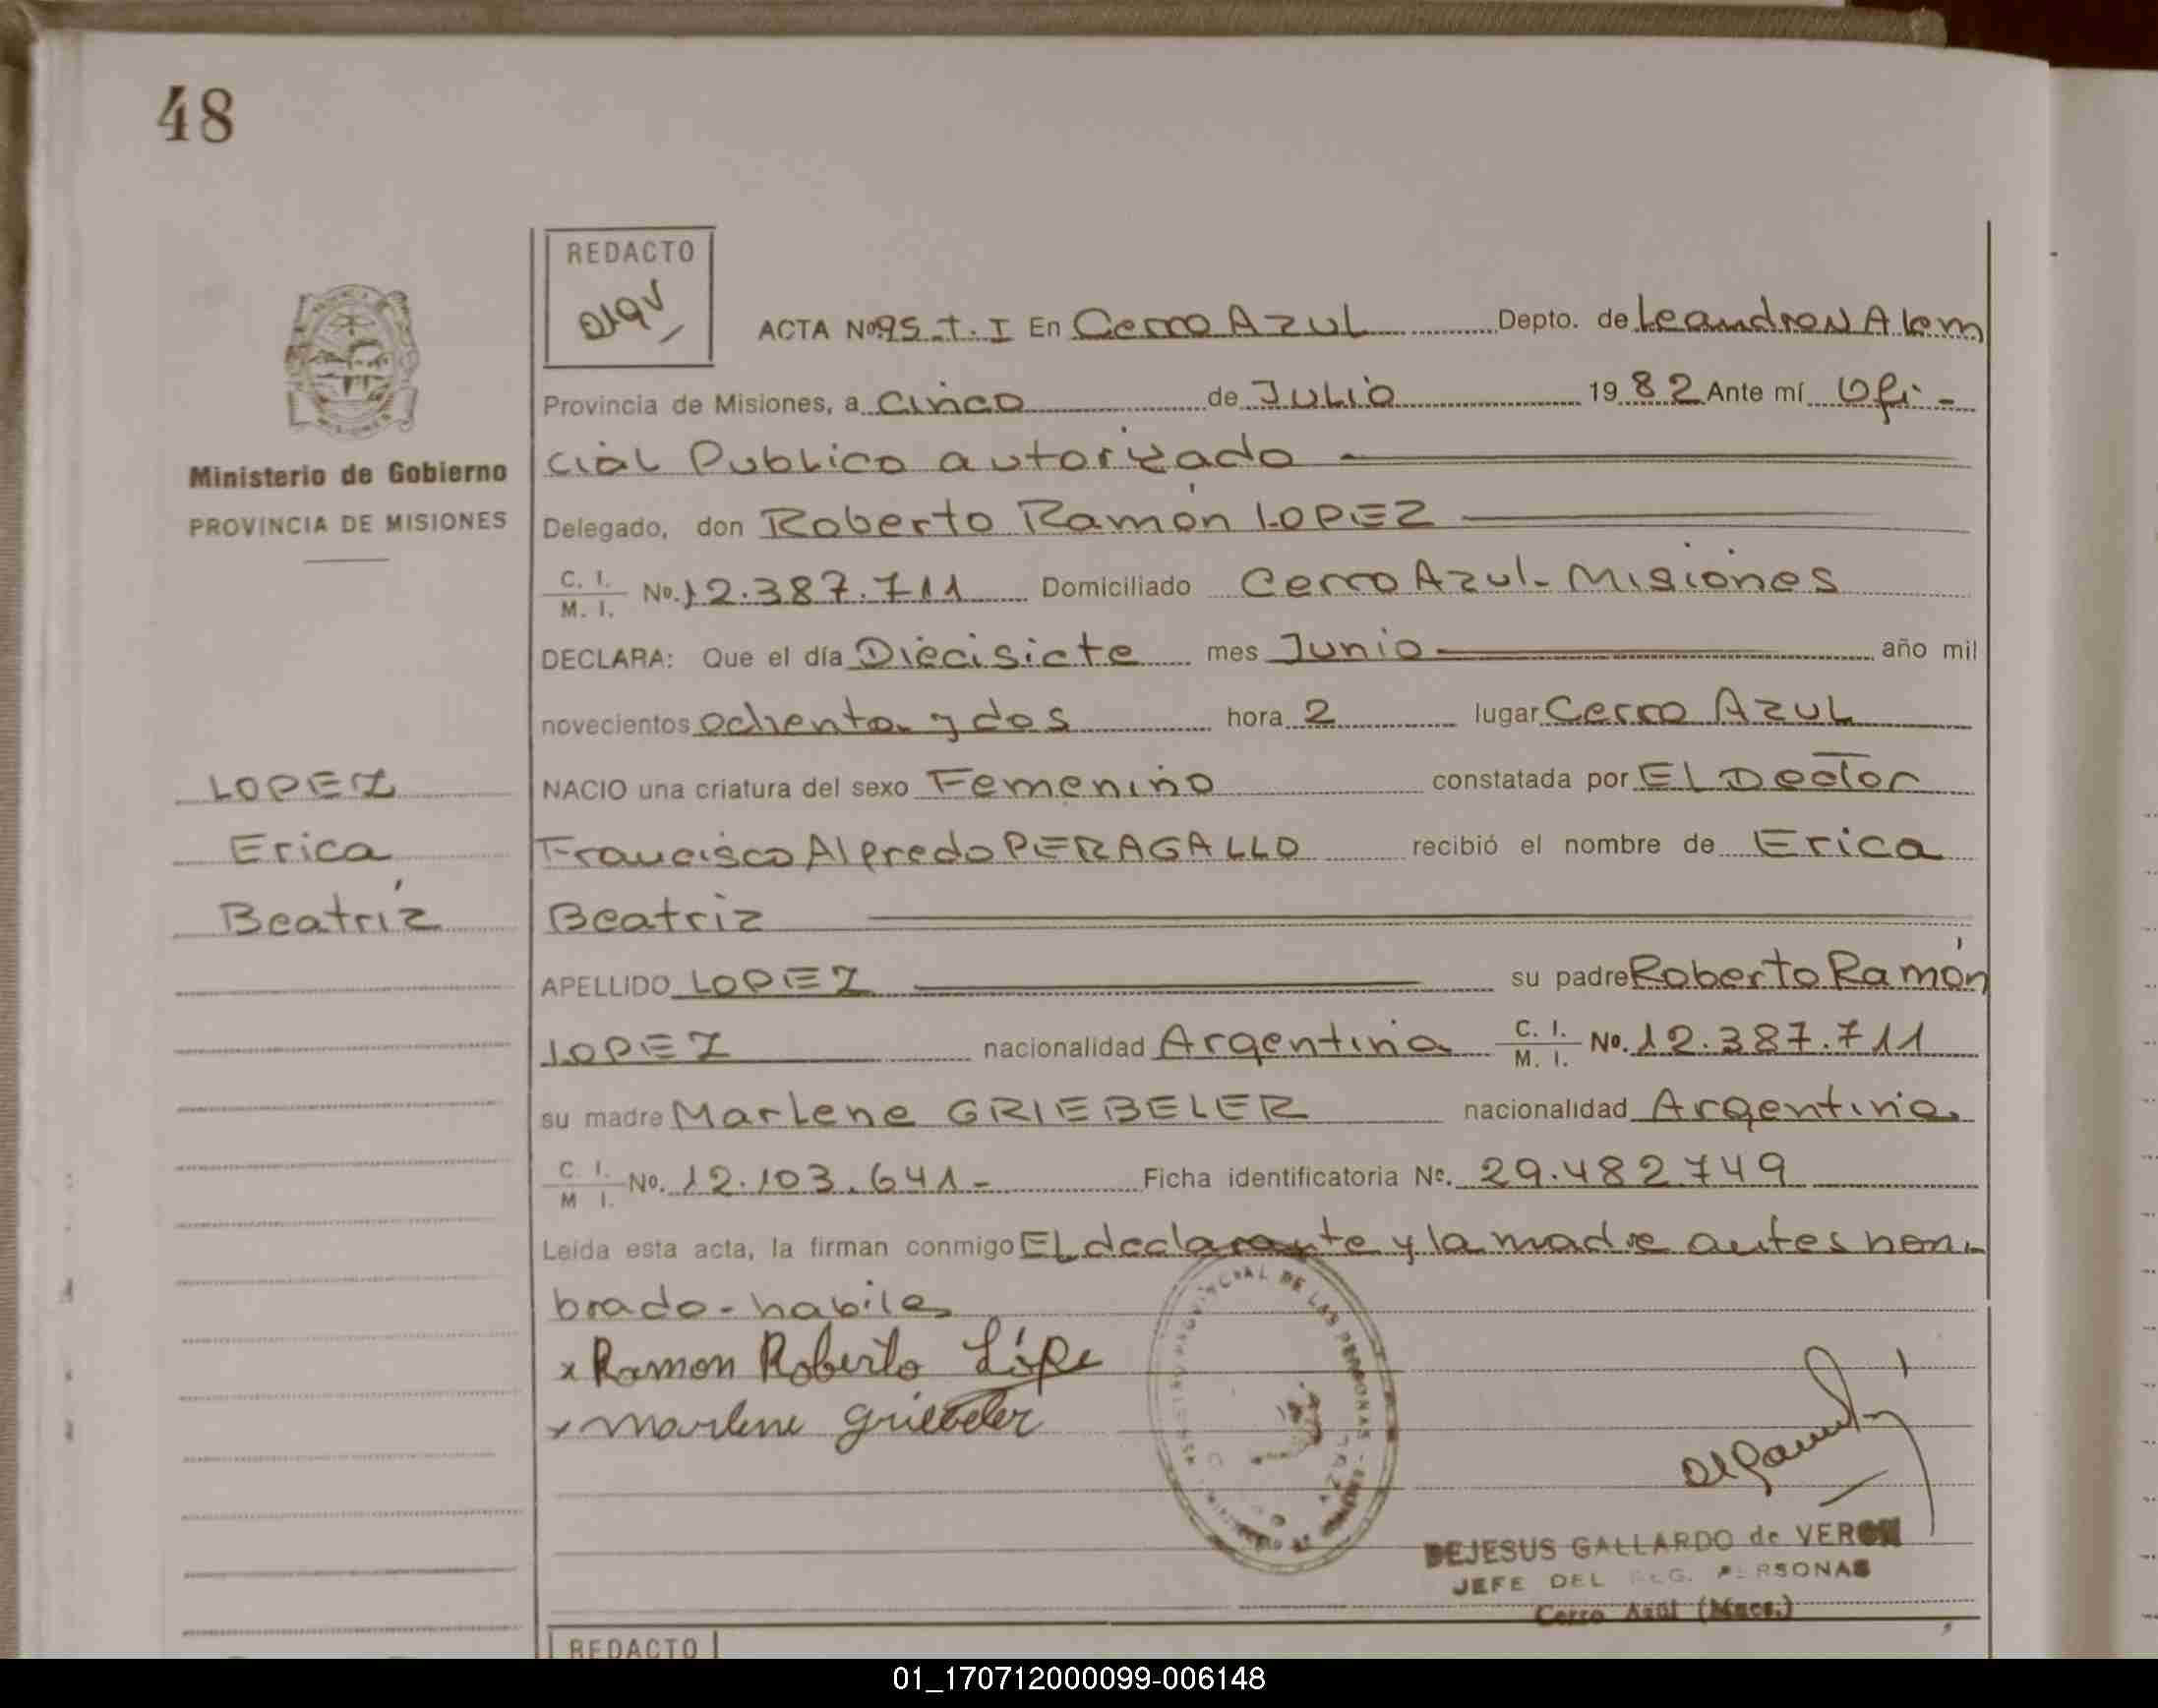 48
REDACTO
ACTA Nº 95 T. I En Cerro AZUL Depto. de Leandro N Alem
Provincia de Misiones, a Cinco de JULIO 1982 Ante mí Ofi-
cial Publico autorizado
Ministerio de Gobierno
PROVINCIA DE MISIONES
Delegado, don Roberto Ramón LOPEZ
C. I. M. I. No. 12.387.711 Domiciliado Cerro Azul- Misiones
DECLARA: Que el día Diecisiete mes Junio año mil
novecientos ochenta y dos hora 2 lugar Cerro AZUL
NACIO una criatura del sexo Femenino constatada por EL Doctor
Francisco Alfredo PERAGALLO recibió el nombre de Erica
Beatriz
LOPEZ
Erica
Beatriz
APELLIDO LOPEZ su padre Roberto Ramón
LOPEZ nacionalidad Argentina C. I. M. I. No. 12.387.711
su madre Marlene GRIEBELER nacionalidad Argentina
C. I. M I. No. 12.103.641- Ficha identificatoria No. 29.482.749
Leída esta acta, la firman conmigo EL declarante y la madre antes nom-
brado-habiles
x Ramon Roberto Lópe
x marlene griebeler
PROVINCIAL DE LAS PERSONAS
DEJESUS GALLARDO de VERON
JEFE DEL REG. PERSONAS
Cerro Azul (Mnes.)
REDACTO
01_170712000099-006148